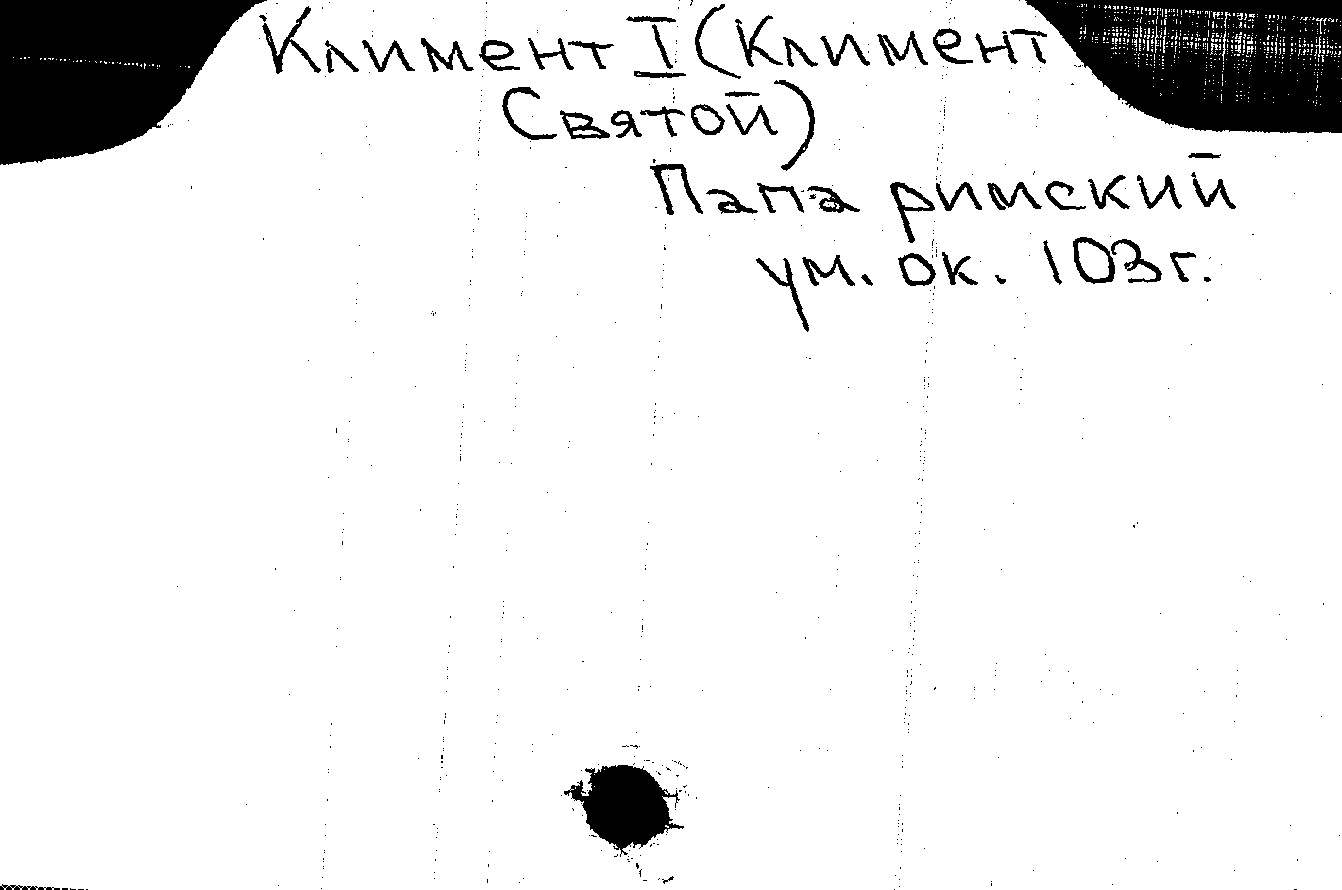 Климент I (Климент
Святой)
Папа римский
ум. ок. 103г.